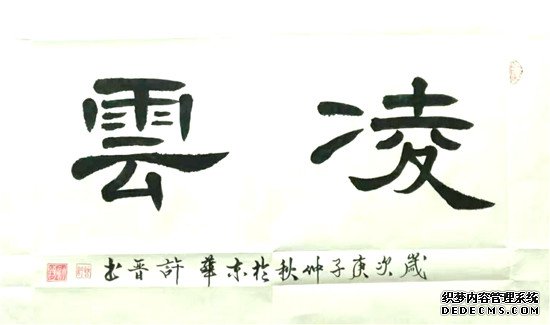 凌雲
歲次庚子仲秋於东華許晋书
织梦内容管理系统
DEDECMS.COM